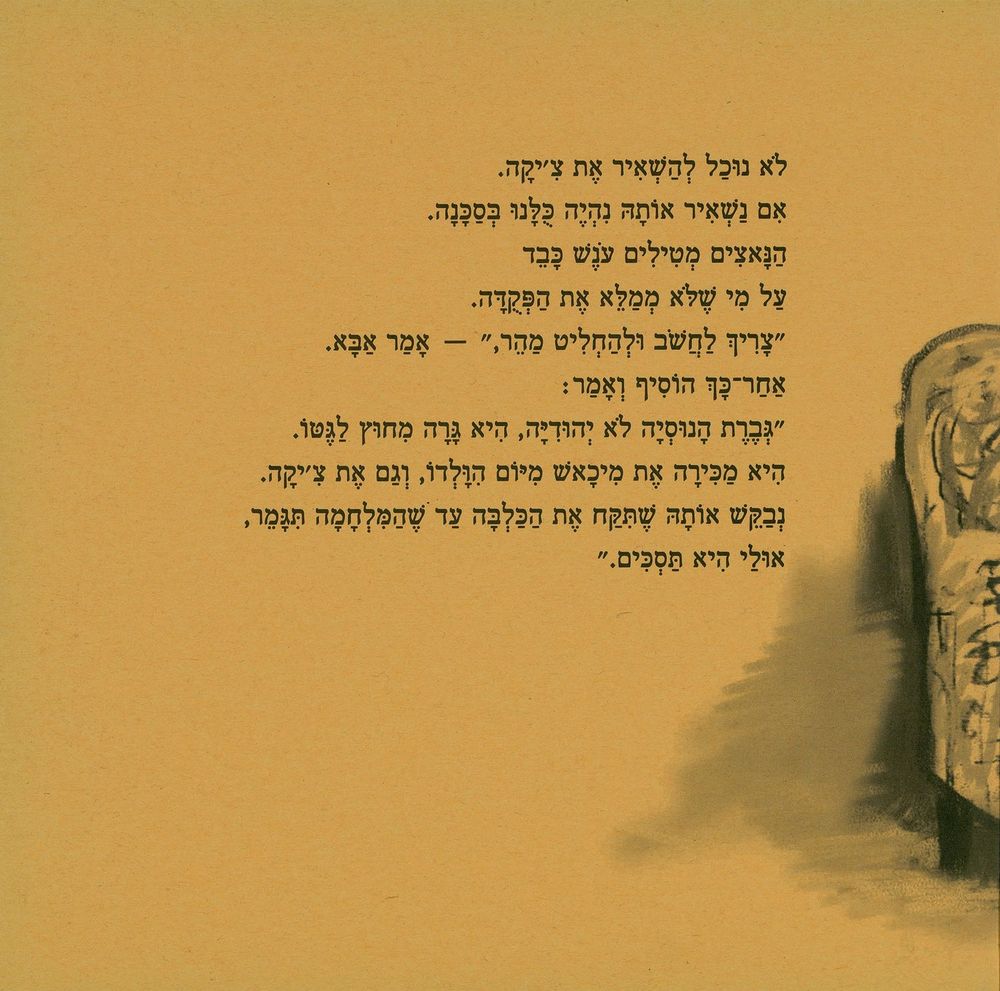 לֹא נוּכַל לְהַשְׁאִיר אֶת צִ׳יקָה.
אִם נַשְׁאִיר אוֹתָהּ נִהְיֶה כֻּלָּנוּ בְּסַכָּנָה.
הַנָּאצִים מְטִילִים עֹנֶשׁ כָּבֵד
עַל מִי שֶׁלֹּא מְמַלֵּא אֶת הַפְּקֻדָּה.
״צָרִיךְ לַחֲשֹׁב וּלְהַחְלִיט מַהֵר,״ — אָמַר אַבָּא.
אַחַר־כָּךְ הוֹסִיף וְאָמַר:
״גְּבֶרֶת הָנוּסְיָה לֹא יְהוּדִיָּה, הִיא גָּרָה מִחוּץ לַגֶּטּוֹ.
הִיא מַכִּירָה אֶת מִיכָאשׁ מִיּוֹם הִוָּלְדוֹ, וְגַם אֶת צִ׳יקָה.
נְבַקֵּשׁ אוֹתָהּ שֶׁתִּקַּח אֶת הַכַּלְבָּה עַד שֶׁהַמִּלְחָמָה תִּגָּמֵר,
אוּלַי הִיא תַּסְכִּים.״